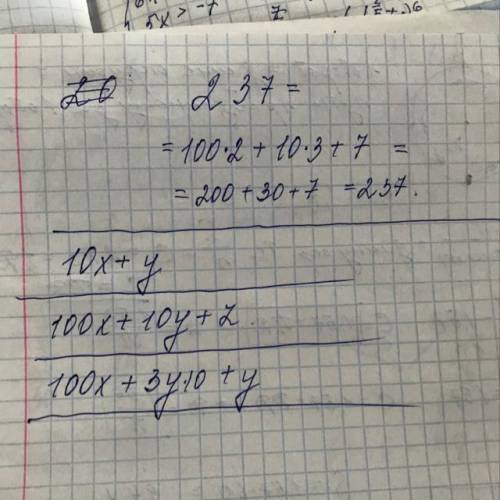 5x > -7
20 237 =
= 100·2 + 10·3 + 7 =
= 200 + 30 + 7 = 237.
10x + y
100x + 10y + z
100x + 3y·10 + y